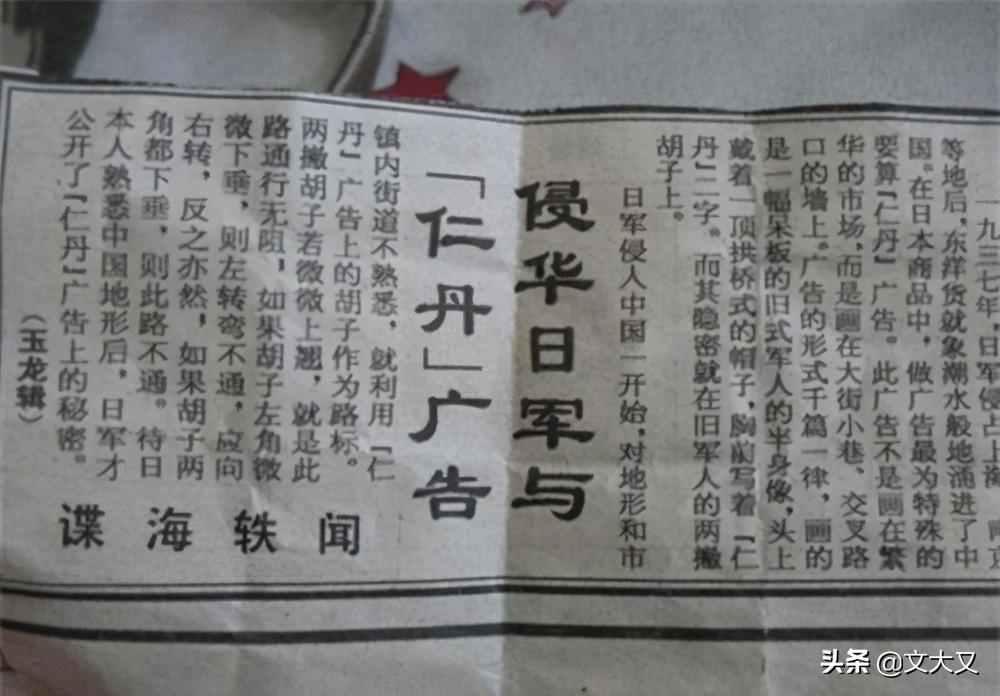 一九三七年,日军侵占上海
等地后,东洋货就象潮水般地涌进了中
国。在日本商品中，做广告最为特殊的
要算「仁丹」广告。此广告不是画在繁
华的市场,而是画在大街小巷、交叉路
口的墙上。广告的形式千篇一律，画的
是一幅呆板的旧式军人的半身像,头上
戴着一顶拱桥式的帽子,胸前写着「仁
丹」二字。而其隐密就在旧军人的两撇
胡子上。
日军侵人中国一开始,对地形和市
侵华日军与
「仁丹」广告
镇内街道不熟悉，就利用「仁
丹」广告上的胡子作为路标。
两撇胡子若微微上翘，就是此
路通行无阻，如果胡子左角微
微下垂，则左转弯不通，应向
右转，反之亦然，如果胡子两
角都下垂，则此路不通。待日
本人熟悉中国地形后，日军才
公开了「仁丹」广告上的秘密。
（玉龙辑）
谍海轶闻
头条 @文大又